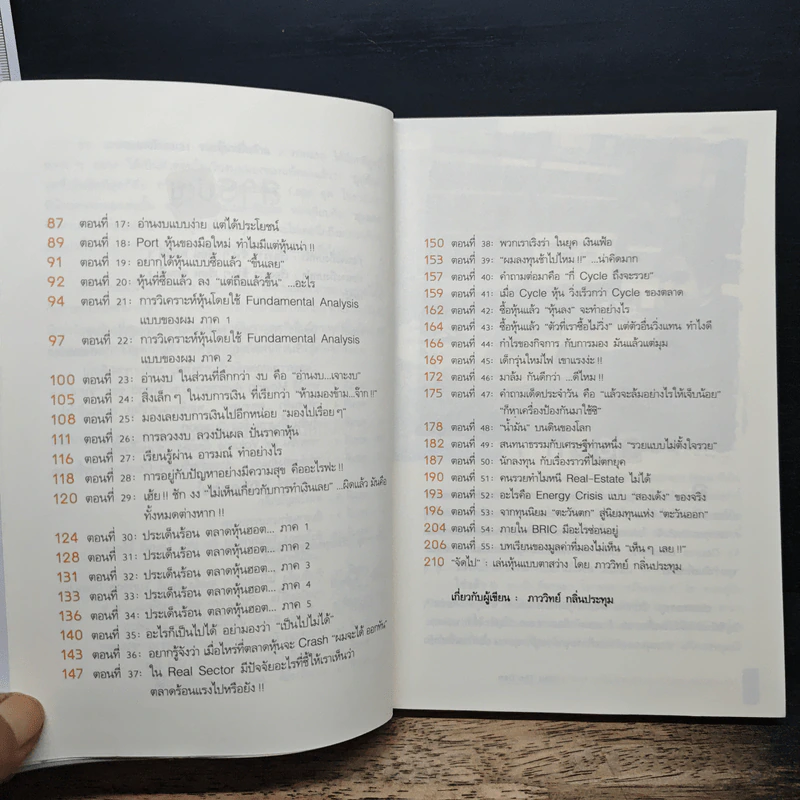 87 ตอนที่ 17: อ่านงบแบบง่าย แต่ได้ประโยชน์
89 ตอนที่ 18: Port หุ้นของมือใหม่ ทำไมมีแต่หุ้นเน่า !!
91 ตอนที่ 19: อยากได้หุ้นแบบซื้อแล้ว "ขึ้นเลย"
92 ตอนที่ 20: หุ้นที่ซื้อแล้ว ลง "แต่ถือแล้วขึ้น" ...อะไร
94 ตอนที่ 21: การวิเคราะห์หุ้นโดยใช้ Fundamental Analysis
แบบของผม ภาค 1
97 ตอนที่ 22: การวิเคราะห์หุ้นโดยใช้ Fundamental Analysis
แบบของผม ภาค 2
100 ตอนที่ 23: อ่านงบ ในส่วนที่ลึกกว่า งบ คือ "อ่านงบ...เจาะงบ"
105 ตอนที่ 24: สิ่งเล็กๆ ในงบการเงิน ที่เรียกว่า "ห้ามมองข้าม...จ๊าก !!"
108 ตอนที่ 25: มองเลยงบการเงินไปอีกหน่อย "มองไปเรื่อยๆ"
111 ตอนที่ 26: การลวงงบ ลวงปันผล ปั่นราคาหุ้น
116 ตอนที่ 27: เรียนรู้ผ่าน อารมณ์ ทำอย่างไร
118 ตอนที่ 28: การอยู่กับปัญหาอย่างมีความสุข คืออะไรฟะ !!
120 ตอนที่ 29: เฮ้ย !! ชัก งง "ไม่เห็นเกี่ยวกับการทำเงินเลย" ...ผิดแล้ว มันคือ
ทั้งหมดต่างหาก !!
124 ตอนที่ 30: ประเด็นร้อน ตลาดหุ้นฮอต... ภาค 1
128 ตอนที่ 31: ประเด็นร้อน ตลาดหุ้นฮอต... ภาค 2
131 ตอนที่ 32: ประเด็นร้อน ตลาดหุ้นฮอต... ภาค 3
133 ตอนที่ 33: ประเด็นร้อน ตลาดหุ้นฮอต... ภาค 4
136 ตอนที่ 34: ประเด็นร้อน ตลาดหุ้นฮอต... ภาค 5
140 ตอนที่ 35: อะไรก็เป็นไปได้ อย่ามองว่า "เป็นไปไม่ได้"
143 ตอนที่ 36: อยากรู้จังว่า เมื่อไหร่ที่ตลาดหุ้นจะ Crash "ผมจะได้ ออกทัน"
147 ตอนที่ 37: ใน Real Sector มีปัจจัยอะไรที่ชี้ให้เราเห็นว่า
ตลาดร้อนแรงไปหรือยัง !!
150 ตอนที่ 38: พวกเราเริงร่า ในยุค เงินเฟ้อ
153 ตอนที่ 39: "ผมลงทุนช้าไปไหม !!" ...น่าคิดมาก
157 ตอนที่ 40: คำถามต่อมาคือ "กี่ Cycle ถึงจะรวย"
159 ตอนที่ 41: เมื่อ Cycle หุ้น วิ่งเร็วกว่า Cycle ของตลาด
162 ตอนที่ 42: ซื้อหุ้นแล้ว "หุ้นลง" จะทำอย่างไร
164 ตอนที่ 43: ซื้อหุ้นแล้ว "ตัวที่เราซื้อไม่วิ่ง" แต่ตัวอื่นวิ่งแทน ทำไงดี
166 ตอนที่ 44: กำไรของกิจการ กับการมอง มันแล้วแต่มุม
169 ตอนที่ 45: เด็กรุ่นใหม่ไฟ เขาแรงง่ะ !!
172 ตอนที่ 46: มาล้ม กันดีกว่า ...ดีไหม !!
175 ตอนที่ 47: คำถามเด็ดประจำวัน คือ "แล้วจะล้มอย่างไรให้เจ็บน้อย"
"ก็หาเครื่องป้องกันมาใช้ซิ"
178 ตอนที่ 48: "น้ำมัน" บนดินของโลก
182 ตอนที่ 49: สนทนาธรรมกับเศรษฐีท่านหนึ่ง "รวยแบบไม่ตั้งใจรวย"
187 ตอนที่ 50: นักลงทุน กับเรื่องราวที่ไม่ตกยุค
190 ตอนที่ 51: คนรวยทำไมหนี Real-Estate ไม่ได้
193 ตอนที่ 52: อะไรคือ Energy Crisis แบบ "สองเด้ง" ของจริง
196 ตอนที่ 53: จากทุนนิยม "ตะวันตก" สู่นิยมทุนแห่ง "ตะวันออก"
204 ตอนที่ 54: ภายใน BRIC มีอะไรซ่อนอยู่
206 ตอนที่ 55: บทเรียนของมูลค่าที่มองไม่เห็น "เห็นๆ เลย !!"
210 "จัดไป" : เล่นหุ้นแบบตาสว่าง โดย ภาววิทย์ กลิ่นประทุม
เกี่ยวกับผู้เขียน : ภาววิทย์ กลิ่นประทุม